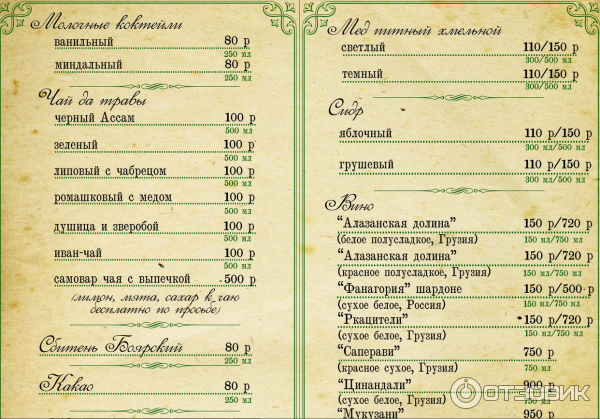 Молочные коктейли
ванильный 80 р
250 мл
миндальный 80 р
250 мл
Чай да травы
черный Ассам 100 р
500 мл
зеленый 100 р
500 мл
липовый с чабрецом 100 р
500 мл
ромашковый с медом 100 р
500 мл
душица и зверобой 100 р
500 мл
иван-чай 100 р
500 мл
самовар чая с выпечкой 500 р
(лимон, мята, сахар к чаю
бесплатно по просьбе)
Сбитень Боярский 80 р
250 мл
Какао 80 р
250 мл
Мед питный хмельной
светлый 110/150 р
300/500 мл
темный 110/150 р
300/500 мл
Сидр
яблочный 110 р/150 р
300 мл/500 мл
грушевый 110 р/150 р
300 мл/500 мл
Вино
"Алазанская долина" 150 р/720 р
(белое полусладкое, Грузия) 150 мл/750 мл
"Алазанская долина" 150 р/720 р
(красное полусладкое, Грузия) 150 мл/750 мл
"Фанагория" шардоне 150 р/500 р
(сухое белое, Россия) 150 мл/750 мл
"Ркацители" 150 р/720 р
(сухое белое, Грузия) 150 мл/750 мл
"Саперави" 750 р
(красное сухое, Грузия) 750 мл
"Цинандали" 900 р
(сухое белое, Грузия)
"Мукузани" 950 р
ОТЗОВИК